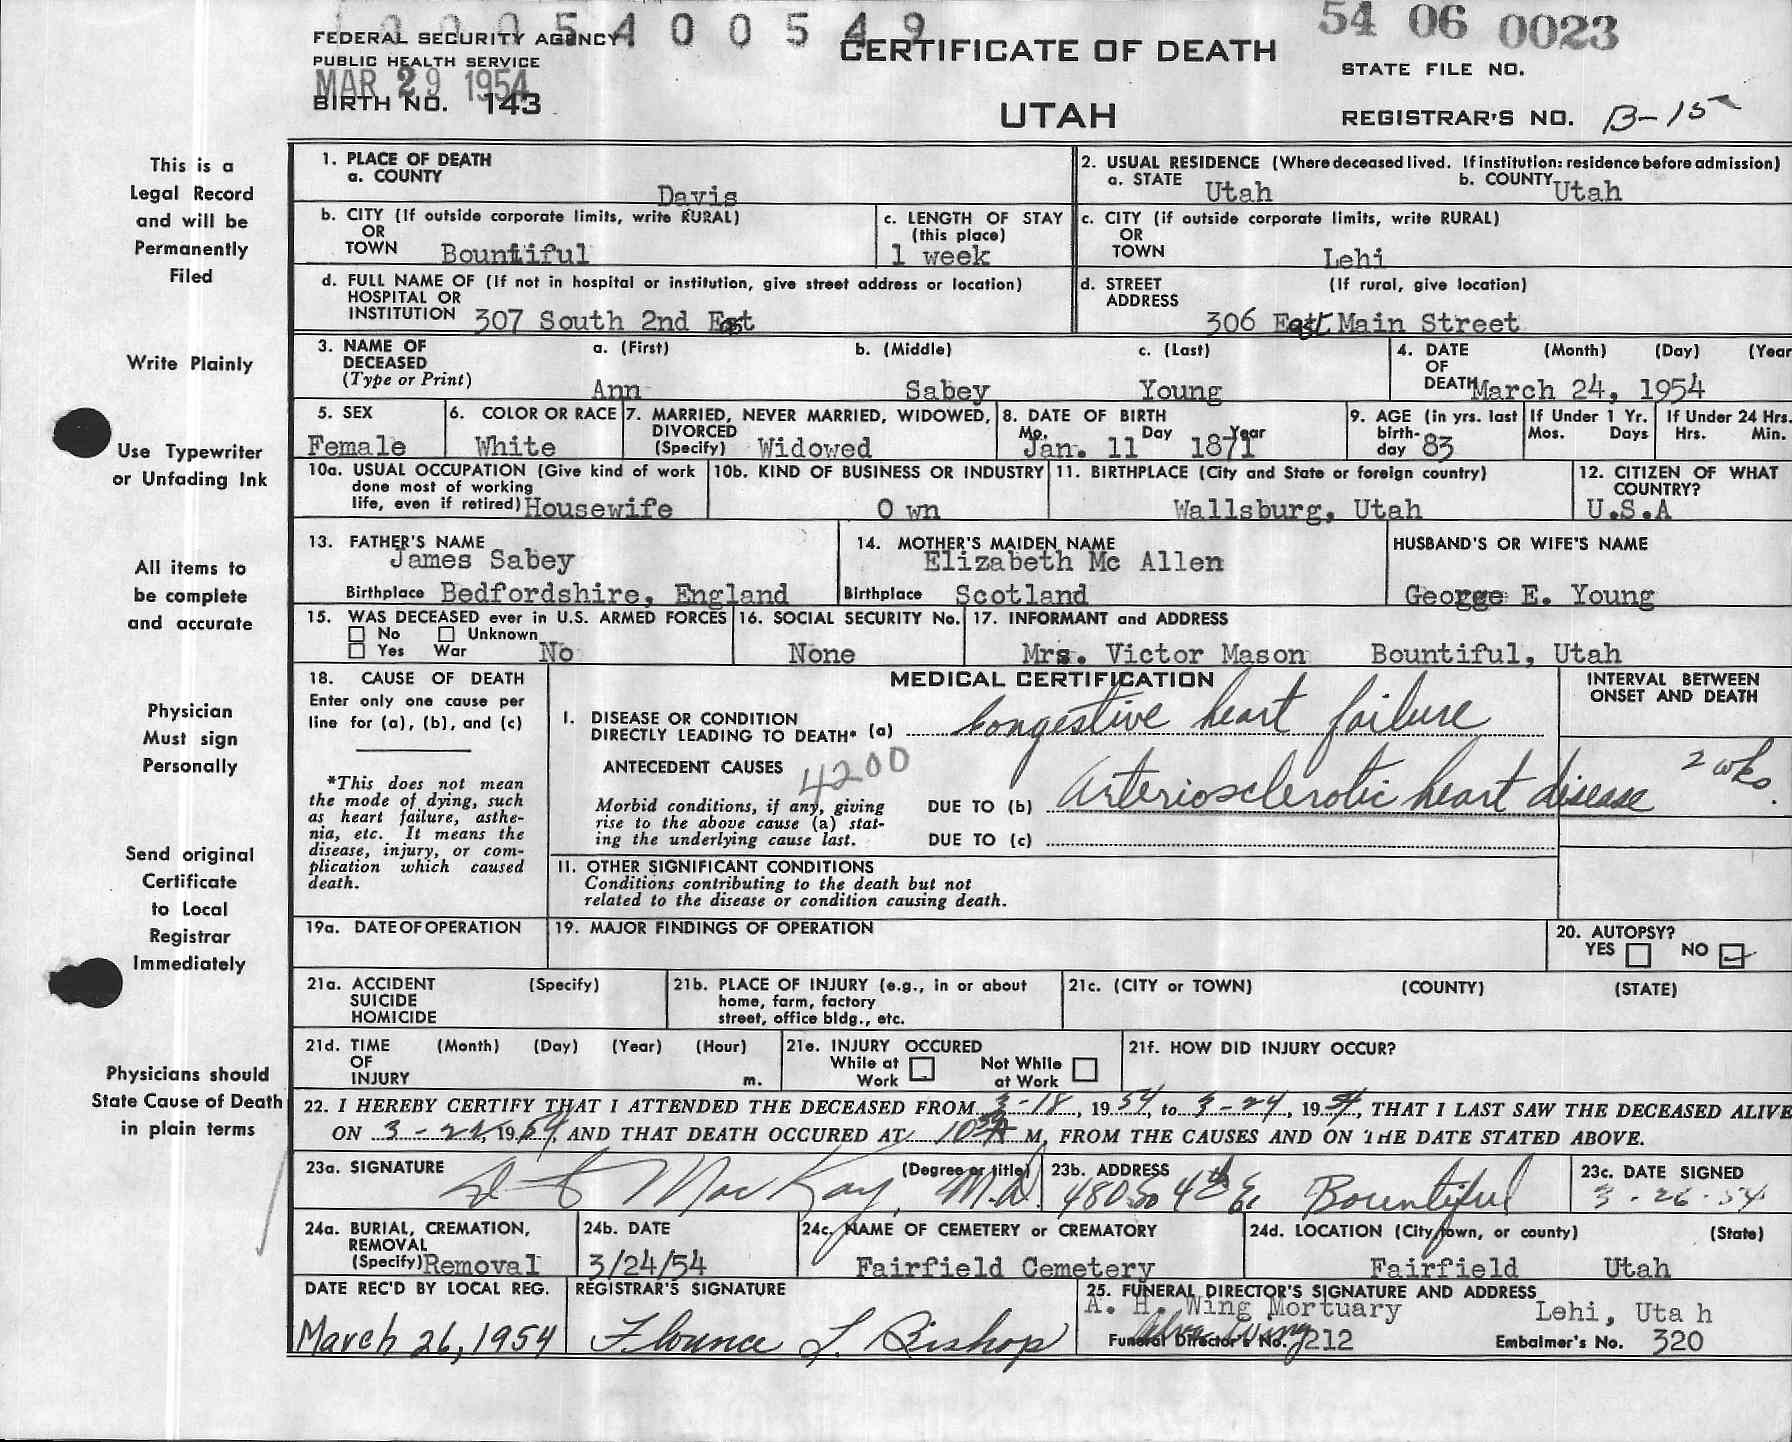 54 06 0023
FEDERAL SECURITY AGENCY
PUBLIC HEALTH SERVICE
MAR 29 1954
BIRTH NO. 143
CERTIFICATE OF DEATH
UTAH
STATE FILE NO.
REGISTRAR'S NO. B-15
This is a
Legal Record
and will be
Permanently
Filed
Write Plainly
Use Typewriter
or Unfading Ink
All items to
be complete
and accurate
Physician
Must sign
Personally
Send original
Certificate
to Local
Registrar
Immediately
Physicians should
State Cause of Death
in plain terms
1. PLACE OF DEATH
a. COUNTY
Davis
2. USUAL RESIDENCE (Where deceased lived. If institution: residence before admission)
a. STATE Utah b. COUNTY Utah
b. CITY (If outside corporate limits, write RURAL)
OR
TOWN Bountiful
c. LENGTH OF STAY
(this place)
1 week
c. CITY (if outside corporate limits, write RURAL)
OR
TOWN Lehi
d. FULL NAME OF (If not in hospital or institution, give street address or location)
HOSPITAL OR
INSTITUTION 307 South 2nd East
d. STREET (If rural, give location)
ADDRESS
306 East Main Street
3. NAME OF a. (First) b. (Middle) c. (Last)
DECEASED
(Type or Print)
Ann Sabey Young
4. DATE (Month) (Day) (Year
OF
DEATH March 24, 1954
5. SEX
Female
6. COLOR OR RACE
White
7. MARRIED, NEVER MARRIED, WIDOWED,
DIVORCED
(Specify) Widowed
8. DATE OF BIRTH
Mo. Day Year
Jan. 11 1871
9. AGE (in yrs. last
birth-
day 83
If Under 1 Yr.
Mos. Days
If Under 24 Hrs.
Hrs. Min.
10a. USUAL OCCUPATION (Give kind of work
done most of working
life, even if retired) Housewife
10b. KIND OF BUSINESS OR INDUSTRY
O wn
11. BIRTHPLACE (City and State or foreign country)
Wallsburg, Utah
12. CITIZEN OF WHAT
COUNTRY?
U.S.A
13. FATHER'S NAME
James Sabey
Birthplace Bedfordshire, England
14. MOTHER'S MAIDEN NAME
Elizabeth Mc Allen
Birthplace Scotland
HUSBAND'S OR WIFE'S NAME
George E. Young
15. WAS DECEASED ever in U.S. ARMED FORCES
No Unknown
Yes War No
16. SOCIAL SECURITY No.
None
17. INFORMANT and ADDRESS
Mrs. Victor Mason Bountiful, Utah
18. CAUSE OF DEATH
Enter only one cause per
line for (a), (b), and (c)
*This does not mean
the mode of dying, such
as heart failure, asthe-
nia, etc. It means the
disease, injury, or com-
plication which caused
death.
MEDICAL CERTIFICATION
INTERVAL BETWEEN
ONSET AND DEATH
I. DISEASE OR CONDITION
DIRECTLY LEADING TO DEATH* (a) Congestive heart failure
ANTECEDENT CAUSES 4200
Morbid conditions, if any, giving
rise to the above cause (a) stat-
ing the underlying cause last.
DUE TO (b) Arteriosclerotic heart disease
2 wks.
DUE TO (c)
II. OTHER SIGNIFICANT CONDITIONS
Conditions contributing to the death but not
related to the disease or condition causing death.
19a. DATE OF OPERATION
19. MAJOR FINDINGS OF OPERATION
20. AUTOPSY?
YES NO
21a. ACCIDENT (Specify)
SUICIDE
HOMICIDE
21b. PLACE OF INJURY (e.g., in or about
home, farm, factory
street, office bldg., etc.
21c. (CITY or TOWN) (COUNTY) (STATE)
21d. TIME (Month) (Day) (Year) (Hour)
OF
INJURY m.
21e. INJURY OCCURED
While at Work Not While at Work
21f. HOW DID INJURY OCCUR?
22. I HEREBY CERTIFY THAT I ATTENDED THE DECEASED FROM 3-18, 1954, to 3-24, 1954, THAT I LAST SAW THE DECEASED ALIVE
ON 3-24, 1954, AND THAT DEATH OCCURED AT M, FROM THE CAUSES AND ON THE DATE STATED ABOVE.
23a. SIGNATURE (Degree or title)
MacKay, M.D.
23b. ADDRESS
480 So 4th E. Bountiful
23c. DATE SIGNED
3-26-54
24a. BURIAL, CREMATION,
REMOVAL
(Specify) Removal
24b. DATE
3/24/54
24c. NAME OF CEMETERY or CREMATORY
Fairfield Cemetery
24d. LOCATION (City, town, or county) (State)
Fairfield Utah
DATE REC'D BY LOCAL REG.
March 26, 1954
REGISTRAR'S SIGNATURE
Florence L. Bishop
25. FUNERAL DIRECTOR'S SIGNATURE AND ADDRESS
A. H. Wing Mortuary Lehi, Uta h
Funeral Director's No. 212 Embalmer's No. 320